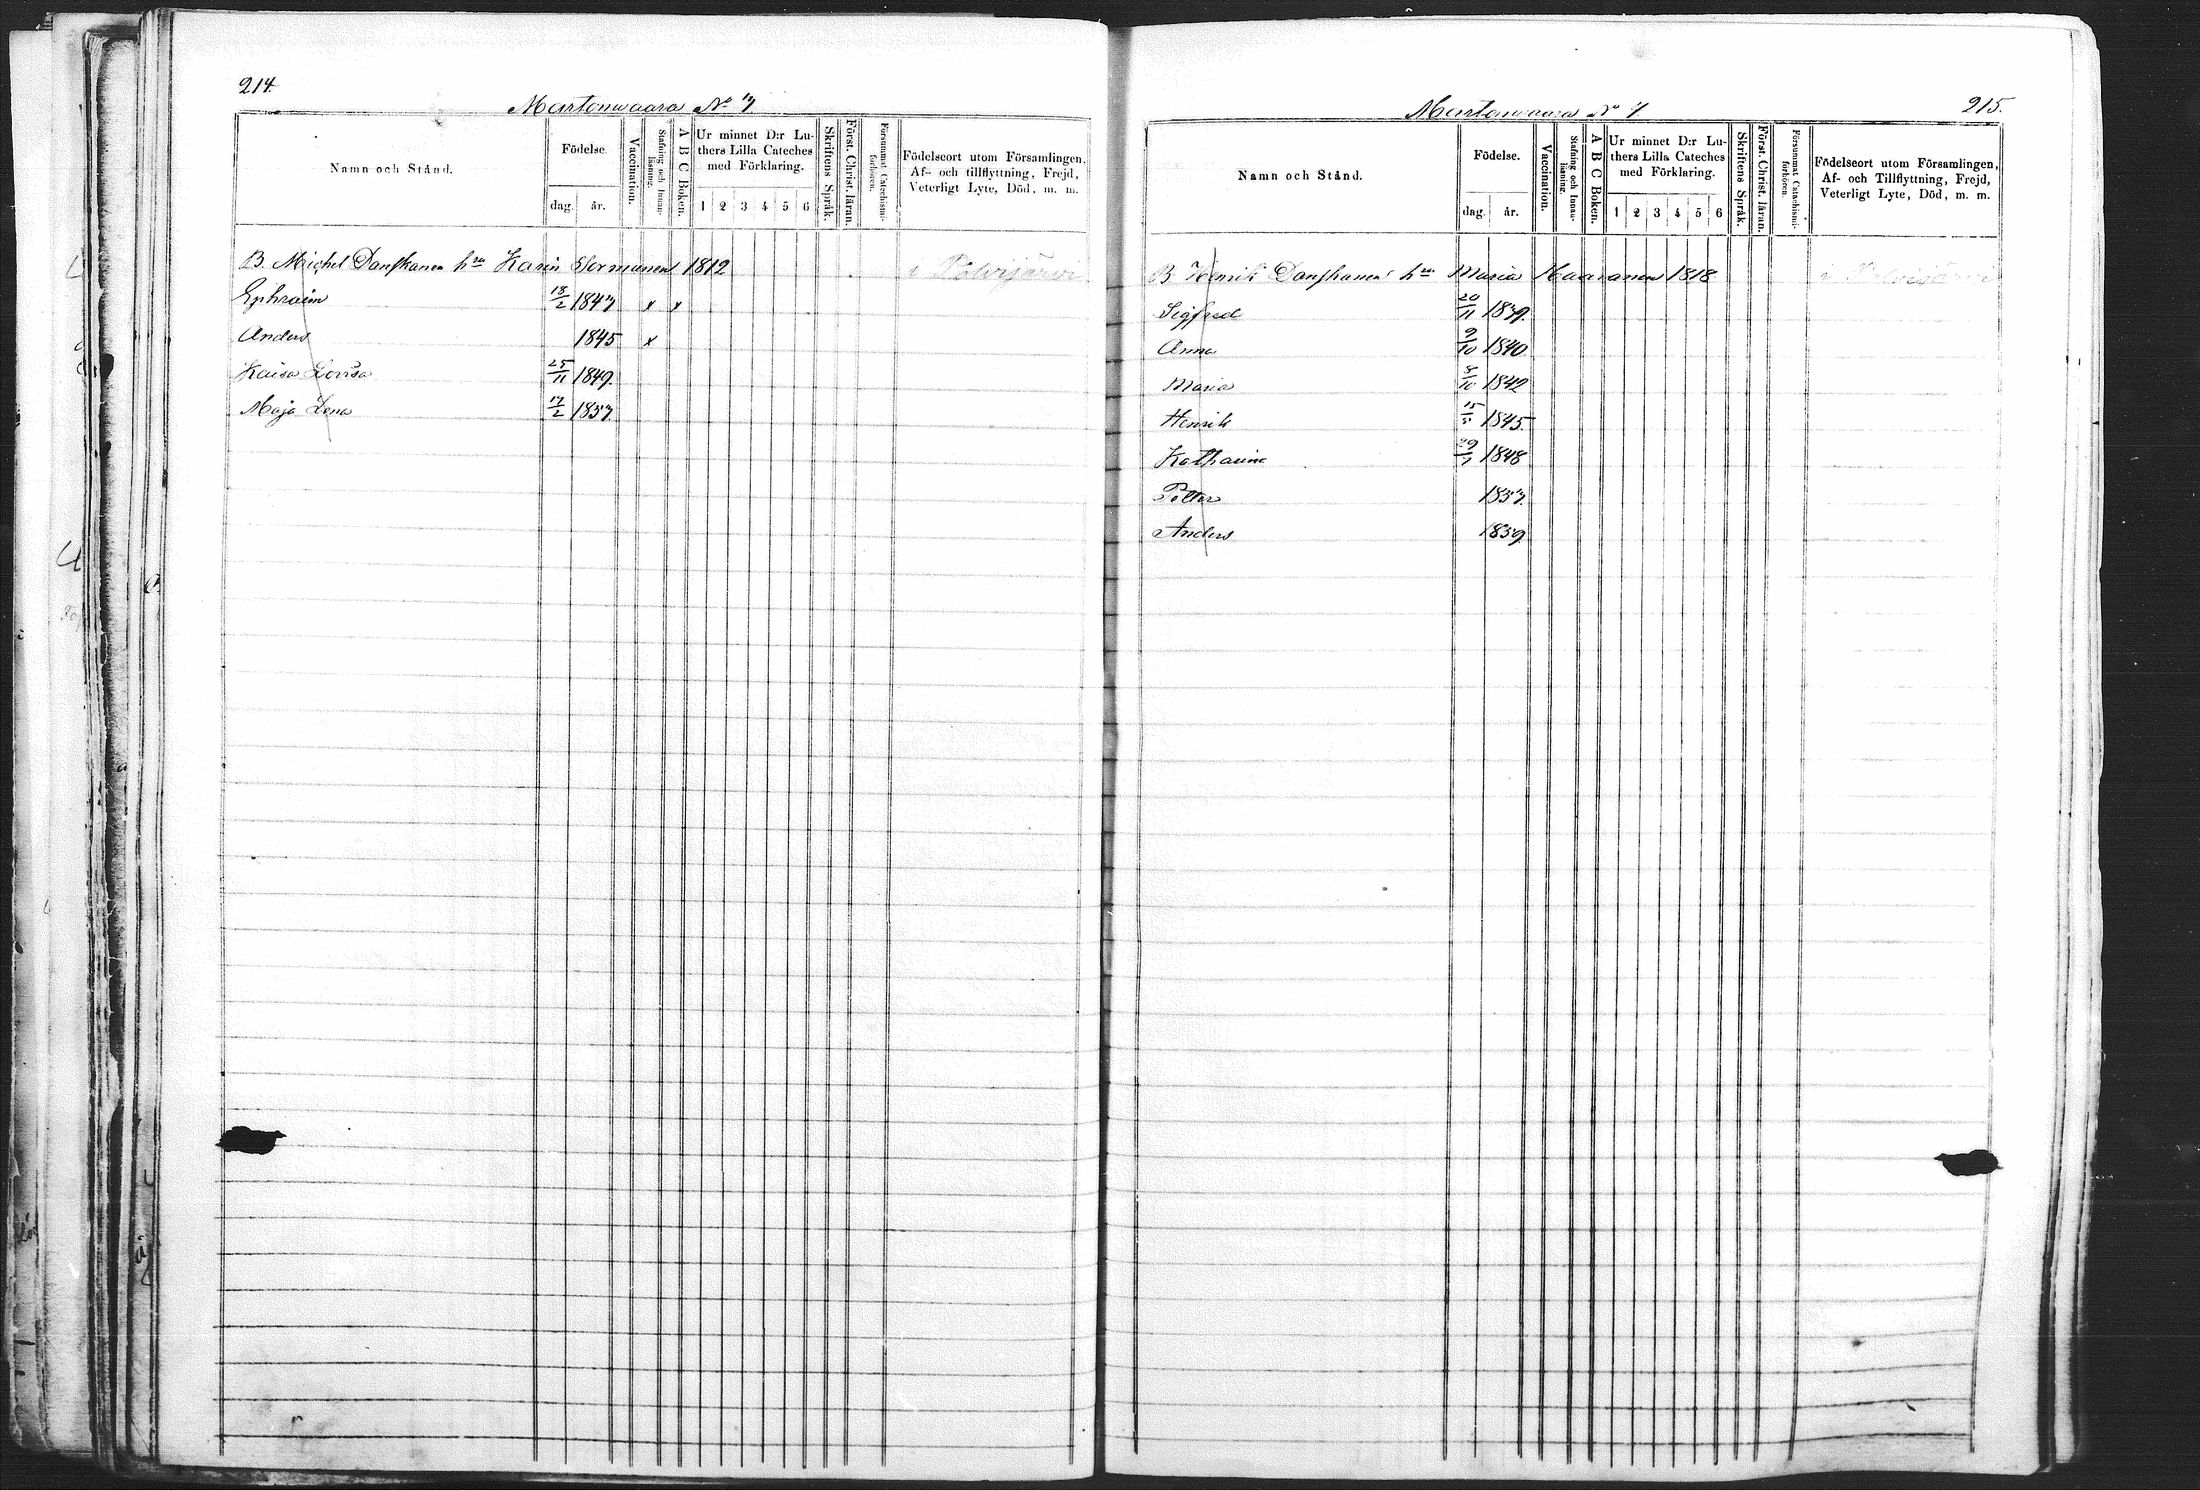 214.
Martonwaara No 7
Namn och Stånd.
Födelse.
dag.
år.
Vaccination.
Stafning och Innan-läsning.
A B C Boken.
Ur minnet D:r Lu-
thers Lilla Cateches
med Förklaring.
1 2 3 4 5 6
Skriftens Språk.
Först. Christ. läran.
Försummat Catechismi-förhören.
Födelseort utom Församlingen,
Af- och tillflyttning, Frejd,
Veterligt Lyte, Död, m. m.
B. Michel Danskanen hru Karin Sormunen 1812 i Polvijärvi
Ephraim 18/2 1847 x x
Anders 1845 x
Kaisa Lovisa 25/11 1849.
Maja Lena 17/2 1857
215.
Martonwaara No 7
Namn och Stånd.
Födelse.
dag.
år.
Vaccination.
Stafning och Innan-läsning.
A B C Boken.
Ur minnet D:r Lu-
thers Lilla Cateches
med Förklaring.
1 2 3 4 5 6
Skriftens Språk.
Först. Christ. läran.
Försummat Catechismi-förhören.
Födelseort utom Församlingen,
Af- och Tillflyttning, Frejd,
Veterligt Lyte, Död, m. m.
B Henrik Danskanen hru Maria Haaranen 1818 i Polvijärvi
Sigfred 20/11 1839.
Anna 9/10 1840
Maria 8/10 1842
Henrik 1845.
Katharina 1848
Petter 1857.
Anders 1859